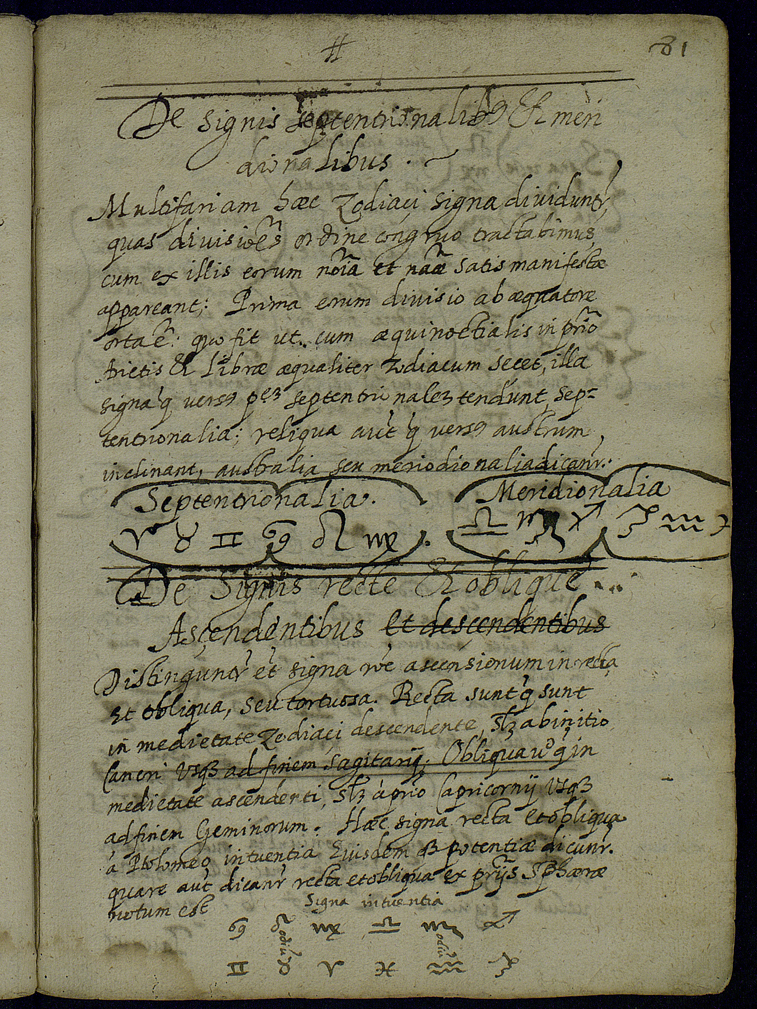 81
De signis septentrionalibꝰ Et meri
dionalibus.
Multifariam hæc Zodiaci signa dividuntr̃,
quas divisioẽs ordine congruo tractabimus,
cum ex illis eorum noĩa et naã satis manifestæ
appareant: Prima erum divisio ab æquatore
orta ẽ: quo fit ut cum æquinoctialis in prĩo
Arietis Et Libræ æqualiter zodiacum secet, illa
signa q̃ versꝰ septentrionalez tendunt sep=
tentrionalia; reliqua aut̃ q̃ versꝰ austrum
inclinant, australia seu meriodionalia dicanr̃.
Septentrionalia.
Meridionalia
♈ ♉ ♊ ♋ ♌ ♍ . ♎ ♏ ♐ ♑ ♒ ♓
De Signis recte Et oblique
Ascendentibus et descendentibus
Distinguntr̃ et signa rõe ascensionum in recta,
Et obliqua, seu tortuosa. Recta sunt q̃ sunt
in medietate Zodiaci descendente, slz ab initio
Cancri usqꝫ ad finem sagitarij. Obliqua vº q̃ in
medietate ascendenti, slz á prĩo Capricornij usqꝫ
ad finem Geminorum. Hæc signa recta et obliqua
á Ptolomeo intuentia Eiusdem potentiæ dicunr̃.
quare aut̃ dicanr̃ recta et obliqua ex prĩjs Sphæræ
notum est
Signa intuentia
♋ ♌ ♍ ♎ ♏ ♐
odiũ odiũ
♊ ♉ ♈ ♓ ♒ ♑